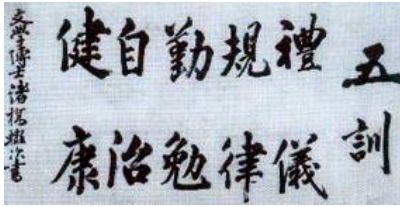 五訓
禮儀
規律
勤勉
自治
健康
文學博士諸橋轍次書